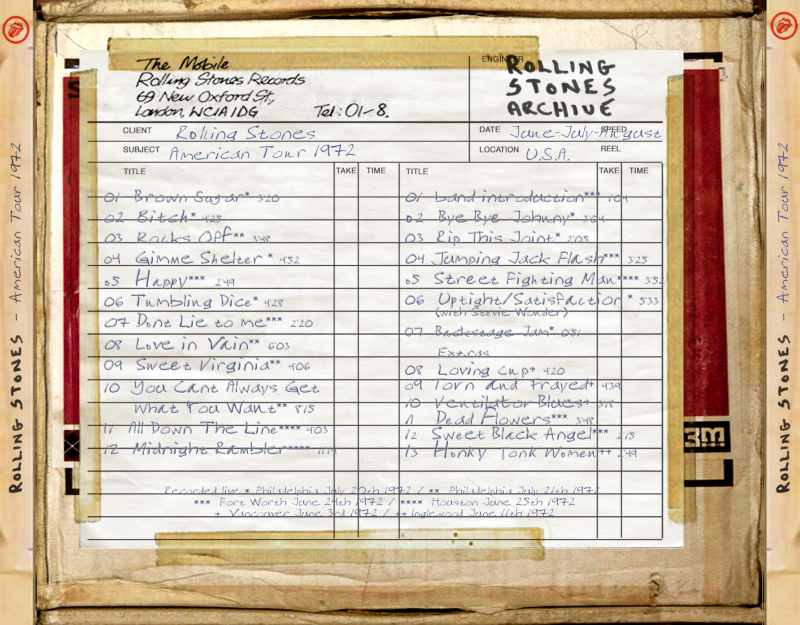 The Mobile
Rolling Stones Records
69 New Oxford St,
London, WC1A1DG Tel: 01-8.
ENGINEER
ROLLING
STONES
ARCHIVE
CLIENT Rolling Stones
DATE June-July-August SPEED
SUBJECT American Tour 1972
LOCATION U.S.A. REEL
TITLE TAKE TIME
01 Brown Sugar* 320
02 Bitch* 425
03 Rocks Off** 348
04 Gimme Shelter* 452
05 Happy*** 249
06 Tumbling Dice* 428
07 Dont Lie to me*** 220
08 Love in Vain** 603
09 Sweet Virginia** 406
10 You Cant Always Get
What You Want** 815
11 All Down The Line**** 403
12 Midnight Rambler*****
TITLE TAKE TIME
01 band introduction*** 104
02 Bye Bye Johnny* 304
03 Rip This Joint* 205
04 Jumping Jack Flash*** 325
05 Street Fighting Man**** 352
06 Uptight/Satisfaction * 533
(with Stevie Wonder)
07 Backstage Jam* 051
Extras
08 Loving Cup+ 420
09 Torn and Frayed+ 439
10 Ventilator Blues+ 318
11 Dead Flowers*** 348
12 Sweet Black Angel*** 215
13 Honky Tonk Women++ 249
Recorded live * Philadelphia July 20th 1972 / ** Philadelphia July 21th 1972
*** Fort Worth June 24th 1972 / **** Houston June 25th 1972
+ Vancouver June 3rd 1972 / ++ Inglewood June 11th 1972
3m
ROLLING STONES - American Tour 1972
ROLLING STONES - American Tour 1972